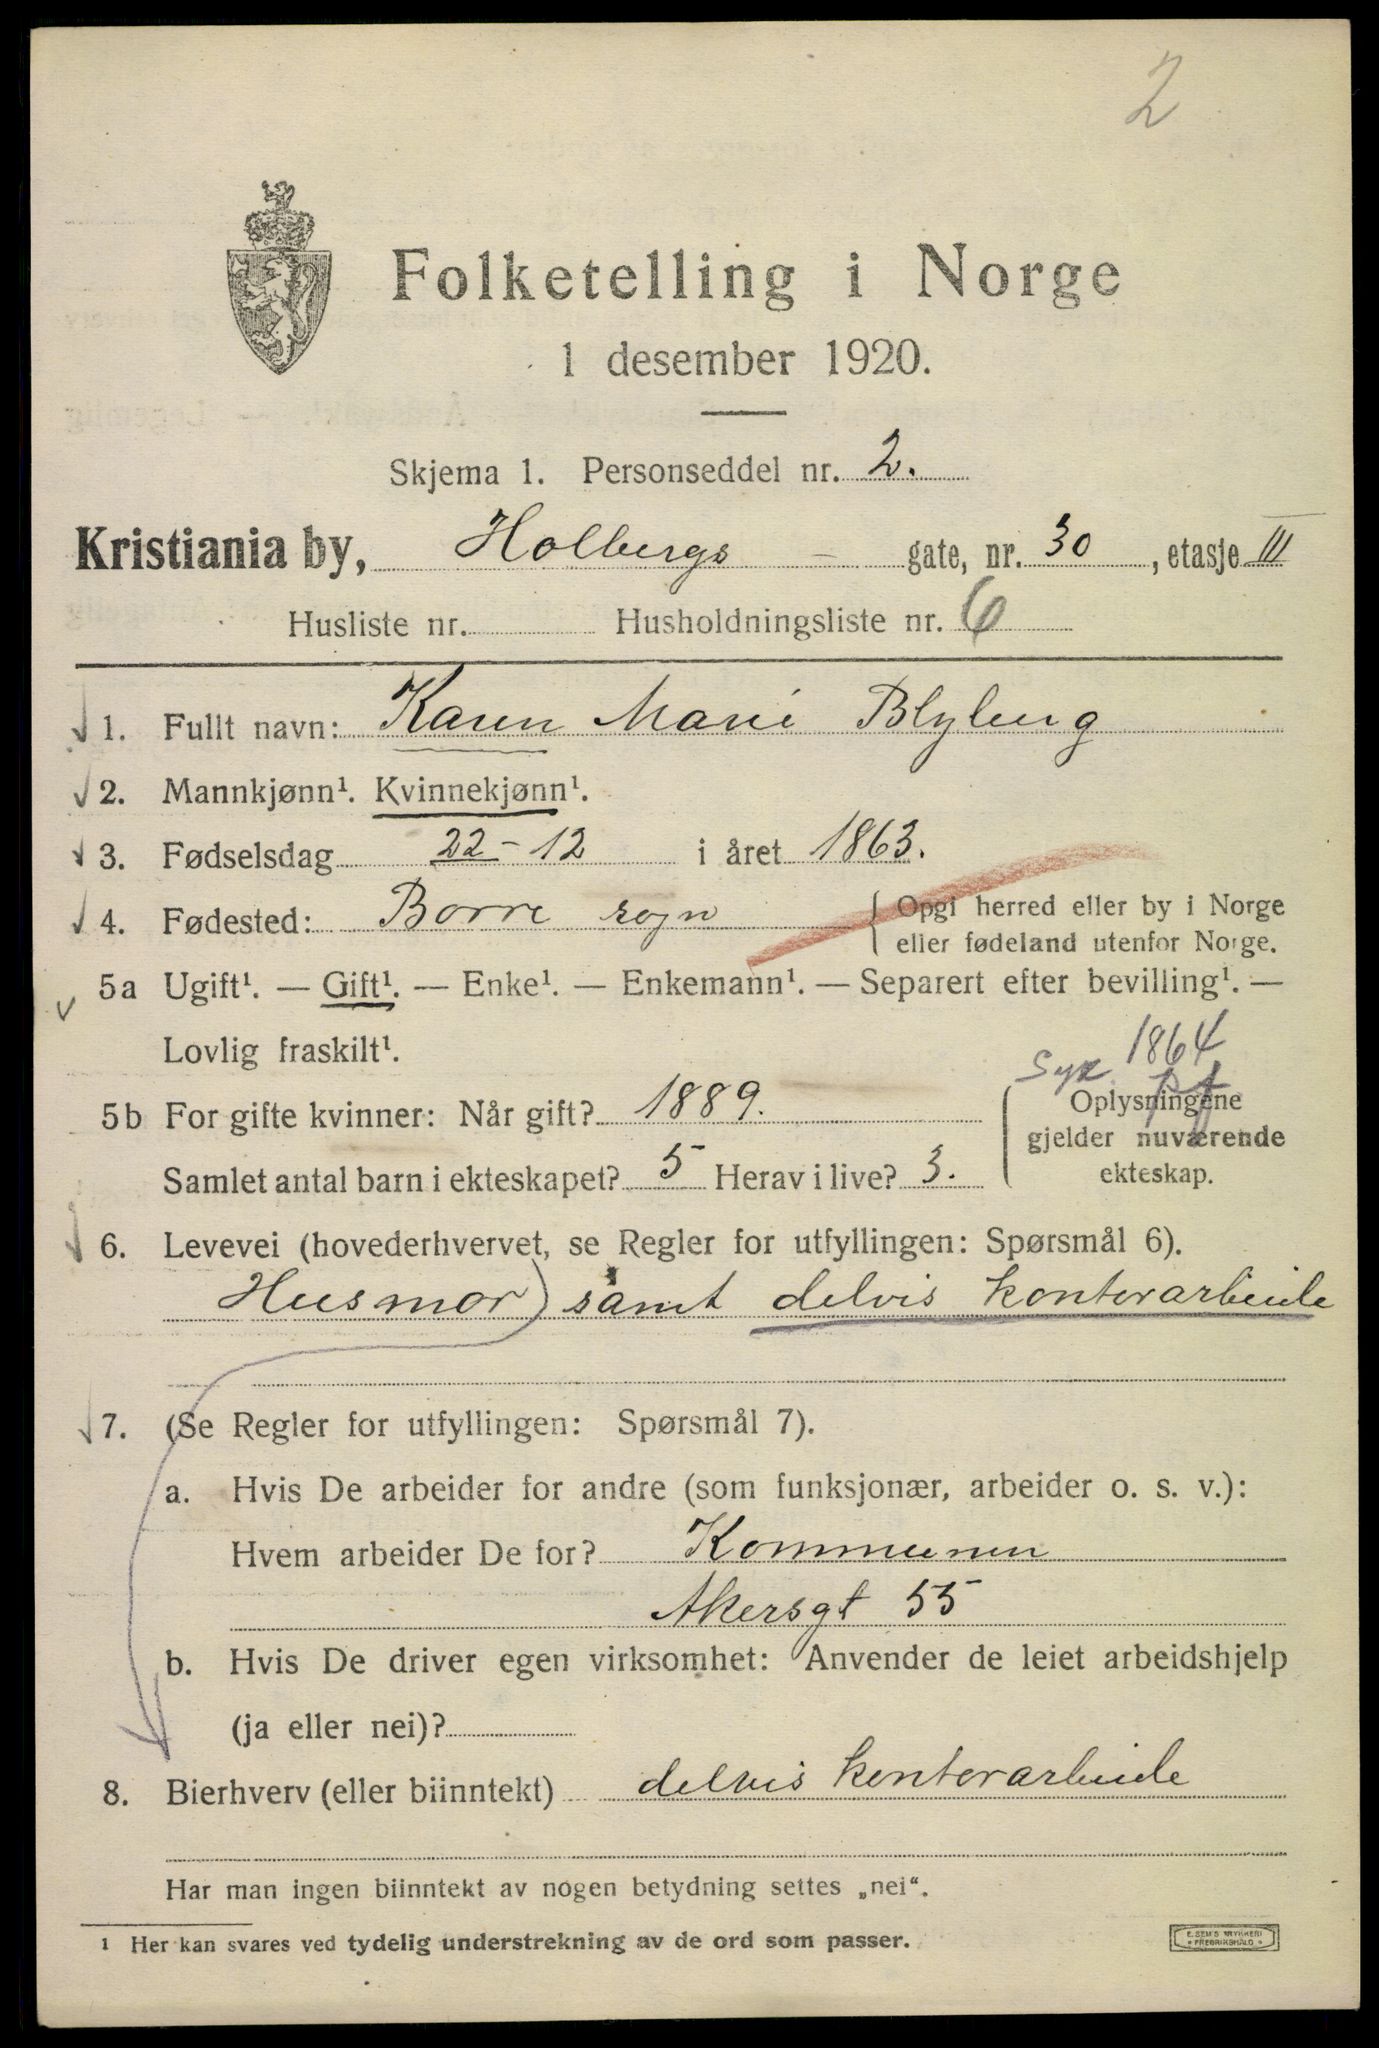 2
Folketelling i Norge
1 desember 1920.
Skjema 1. Personseddel nr. 2.
Kristiania by, Holbergs - gate, nr. 30, etasje III
Husliste nr. Husholdningsliste nr. 6
1. Fullt navn: Karen Marie Blyberg
2. Mannkjønn¹. Kvinnekjønn¹.
3. Fødselsdag 22-12 i året 1863.
4. Fødested: Borre sogn { Opgi herred eller by i Norge
eller fødeland utenfor Norge.
5a Ugift¹. — Gift¹. — Enke¹. — Enkemann¹. — Separert efter bevilling¹. —
Lovlig fraskilt¹.
1864
5b For gifte kvinner: Når gift? 1889. { Oplysningene
gjelder nuværende
Samlet antal barn i ekteskapet? 5 Herav i live? 3. ekteskap.
6. Levevei (hovederhvervet, se Regler for utfyllingen: Spørsmål 6).
Husmor) samt delvis kontorarbeide
7. (Se Regler for utfyllingen: Spørsmål 7).
a. Hvis De arbeider for andre (som funksjonær, arbeider o. s. v.):
Hvem arbeider De for? Kommunen
Akersgt 55
b. Hvis De driver egen virksomhet: Anvender de leiet arbeidshjelp
(ja eller nei)?
8. Bierhverv (eller biinntekt) delvis kontorarbeide
Har man ingen biinntekt av nogen betydning settes „nei“.
¹ Her kan svares ved tydelig understrekning av de ord som passer.
E. SEM'S TRYKKERI
• FREDRIKSHALD •